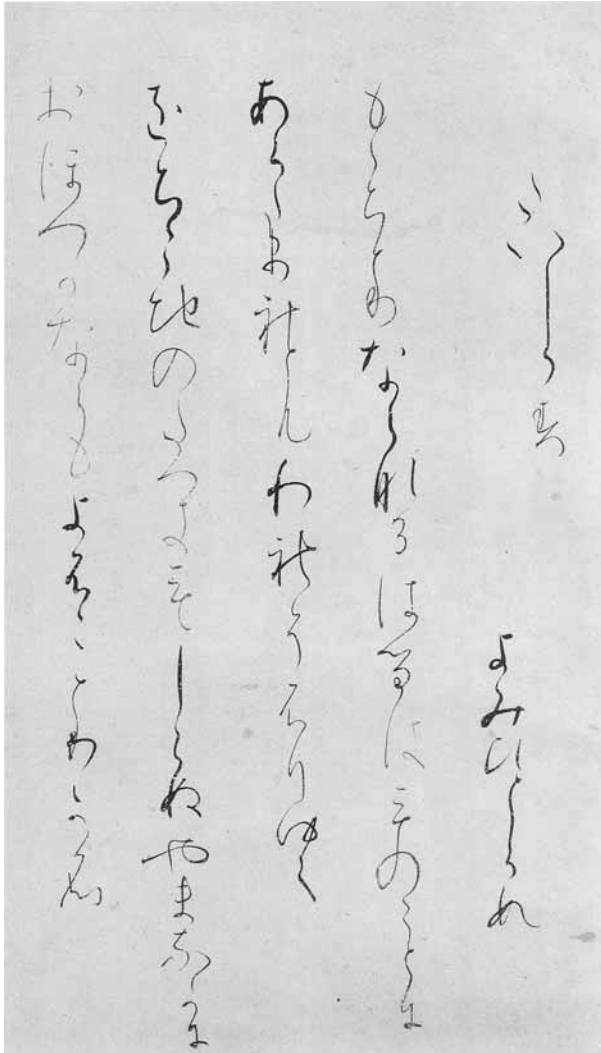 たいしらす　よみひとしらぬ
もゝちとりさへつるはるはものことに
あらたまれともわれそふりゆく
をちこちのたつきもしらぬやまなかに
おほつかなくもよふことりかな